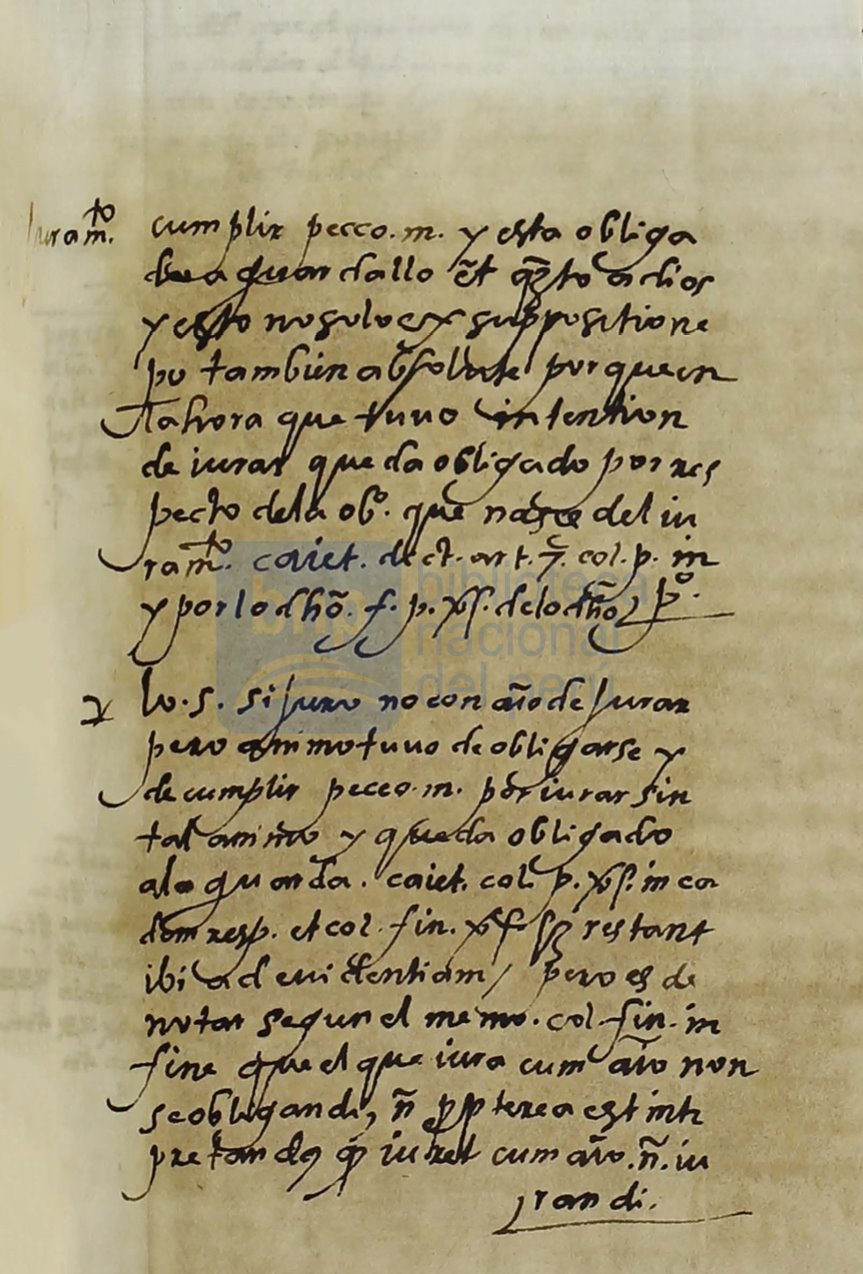 Juram.to cumplir pecco. m. y esta obliga
do a guardallo et quāto a dios
y esto no solo ex suppositione
po tambien absolute porque en
la hora que tuvo intention
de iurar queda obligado por res
pecto dela ob.o que nasce del iu
ram.to caiet. dict. art. 7. col. p. in p.o
y por lo dhõ. f. p. xf. de lo dhõ
2 lo. s. si Juro no con aīo de Jurar
pero animo tuuo de obligarse y
de cumplir pecco. m. por iurar sin
tal animo y queda obligado
ala guarda. caiet. col. p. xf. in ea
dem resp. et col. fin. xf restant
ibi ad euidentiam / pero es de
notar segun el mesmo. col. fin. in
fine que el que iura cum aīo non
se obligandi, ñ propterea est inter
pretandus q iuret cum aīo. ñ. iu
randi.
biblioteca
nacional
del perú
bnp